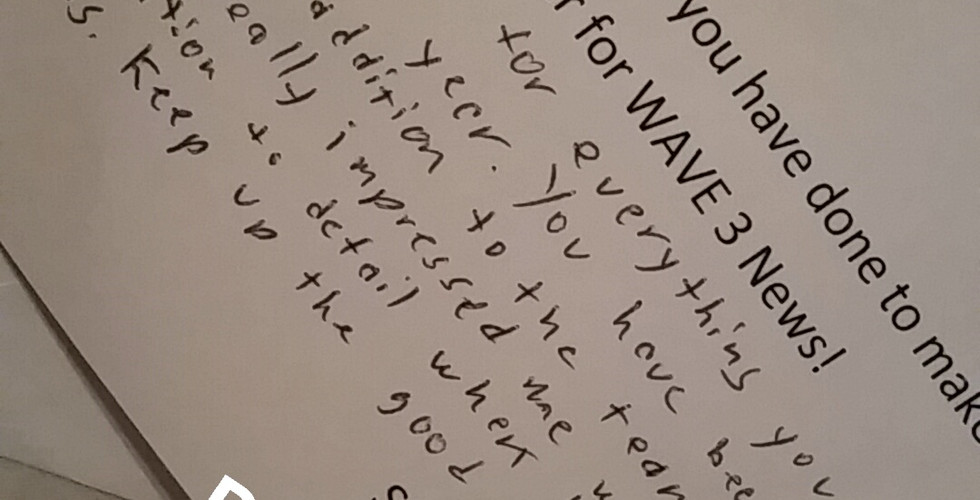 you have done to make
for WAVE 3 News!
for everything you
year. You have bee
addition to the team
eally impressed me w
tion to detail when
s. Keep up the good